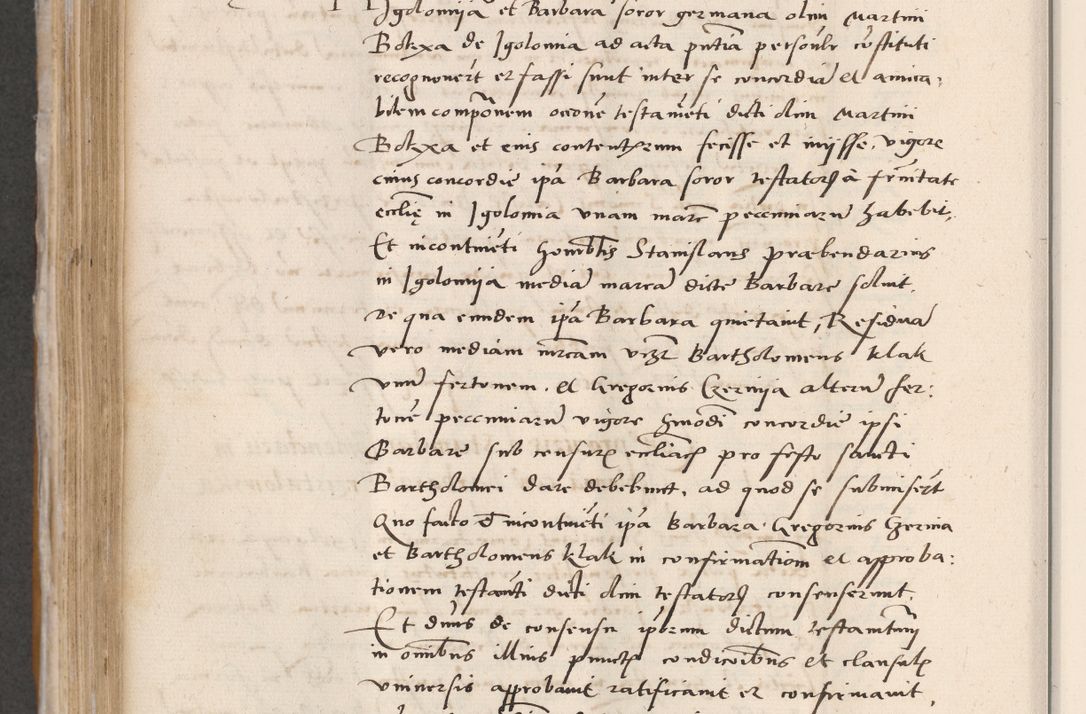 Igolomija et Barbara soror germana olim Martini
Botxa de Igolomia ad acta pntia personlr cõstituti
recognoverũt et fassi sunt inter se concordiã et amica,
bilem componem occõne testamẽti dicti olim Martini
Botxa et eius contentorum fecisse et inijsse, vigore
cuius concordie ipa Barbara soror testatoris à frñitate
ecclię in Igolomia unam marc peccuniarũ habebit,
Et incontinẽti honorblis Stanislaus præbendarius
in Igolomija mediã marcã dicte Barbare solvit,
de qua eundem ipa Barbara quietavit, Residuã
vero mediam mrcam vczt Bartholomeus Klak
unũ fertonem, et Gregorius Czernija alterũ fer:
tonẽ peccuniarũ vigore hmodi concordie ipsi
Barbare sub censuris ecclīacis pro festo sancti
Bartholomei dare debebunt, ad quod se submiserũt
Quo facto et incontinẽti ipa Barbara, Gregorius Czernia
et Bartholomeus Klak in confirmatiom et approba:
tionem testamẽti dicti olim testatoris consenserunt,
Et dnus de consensu ipsorum dictum testamentum
in omnibus illius punctis condicoibus et clausulis
universis approbavit ratificavit et confirmavit,